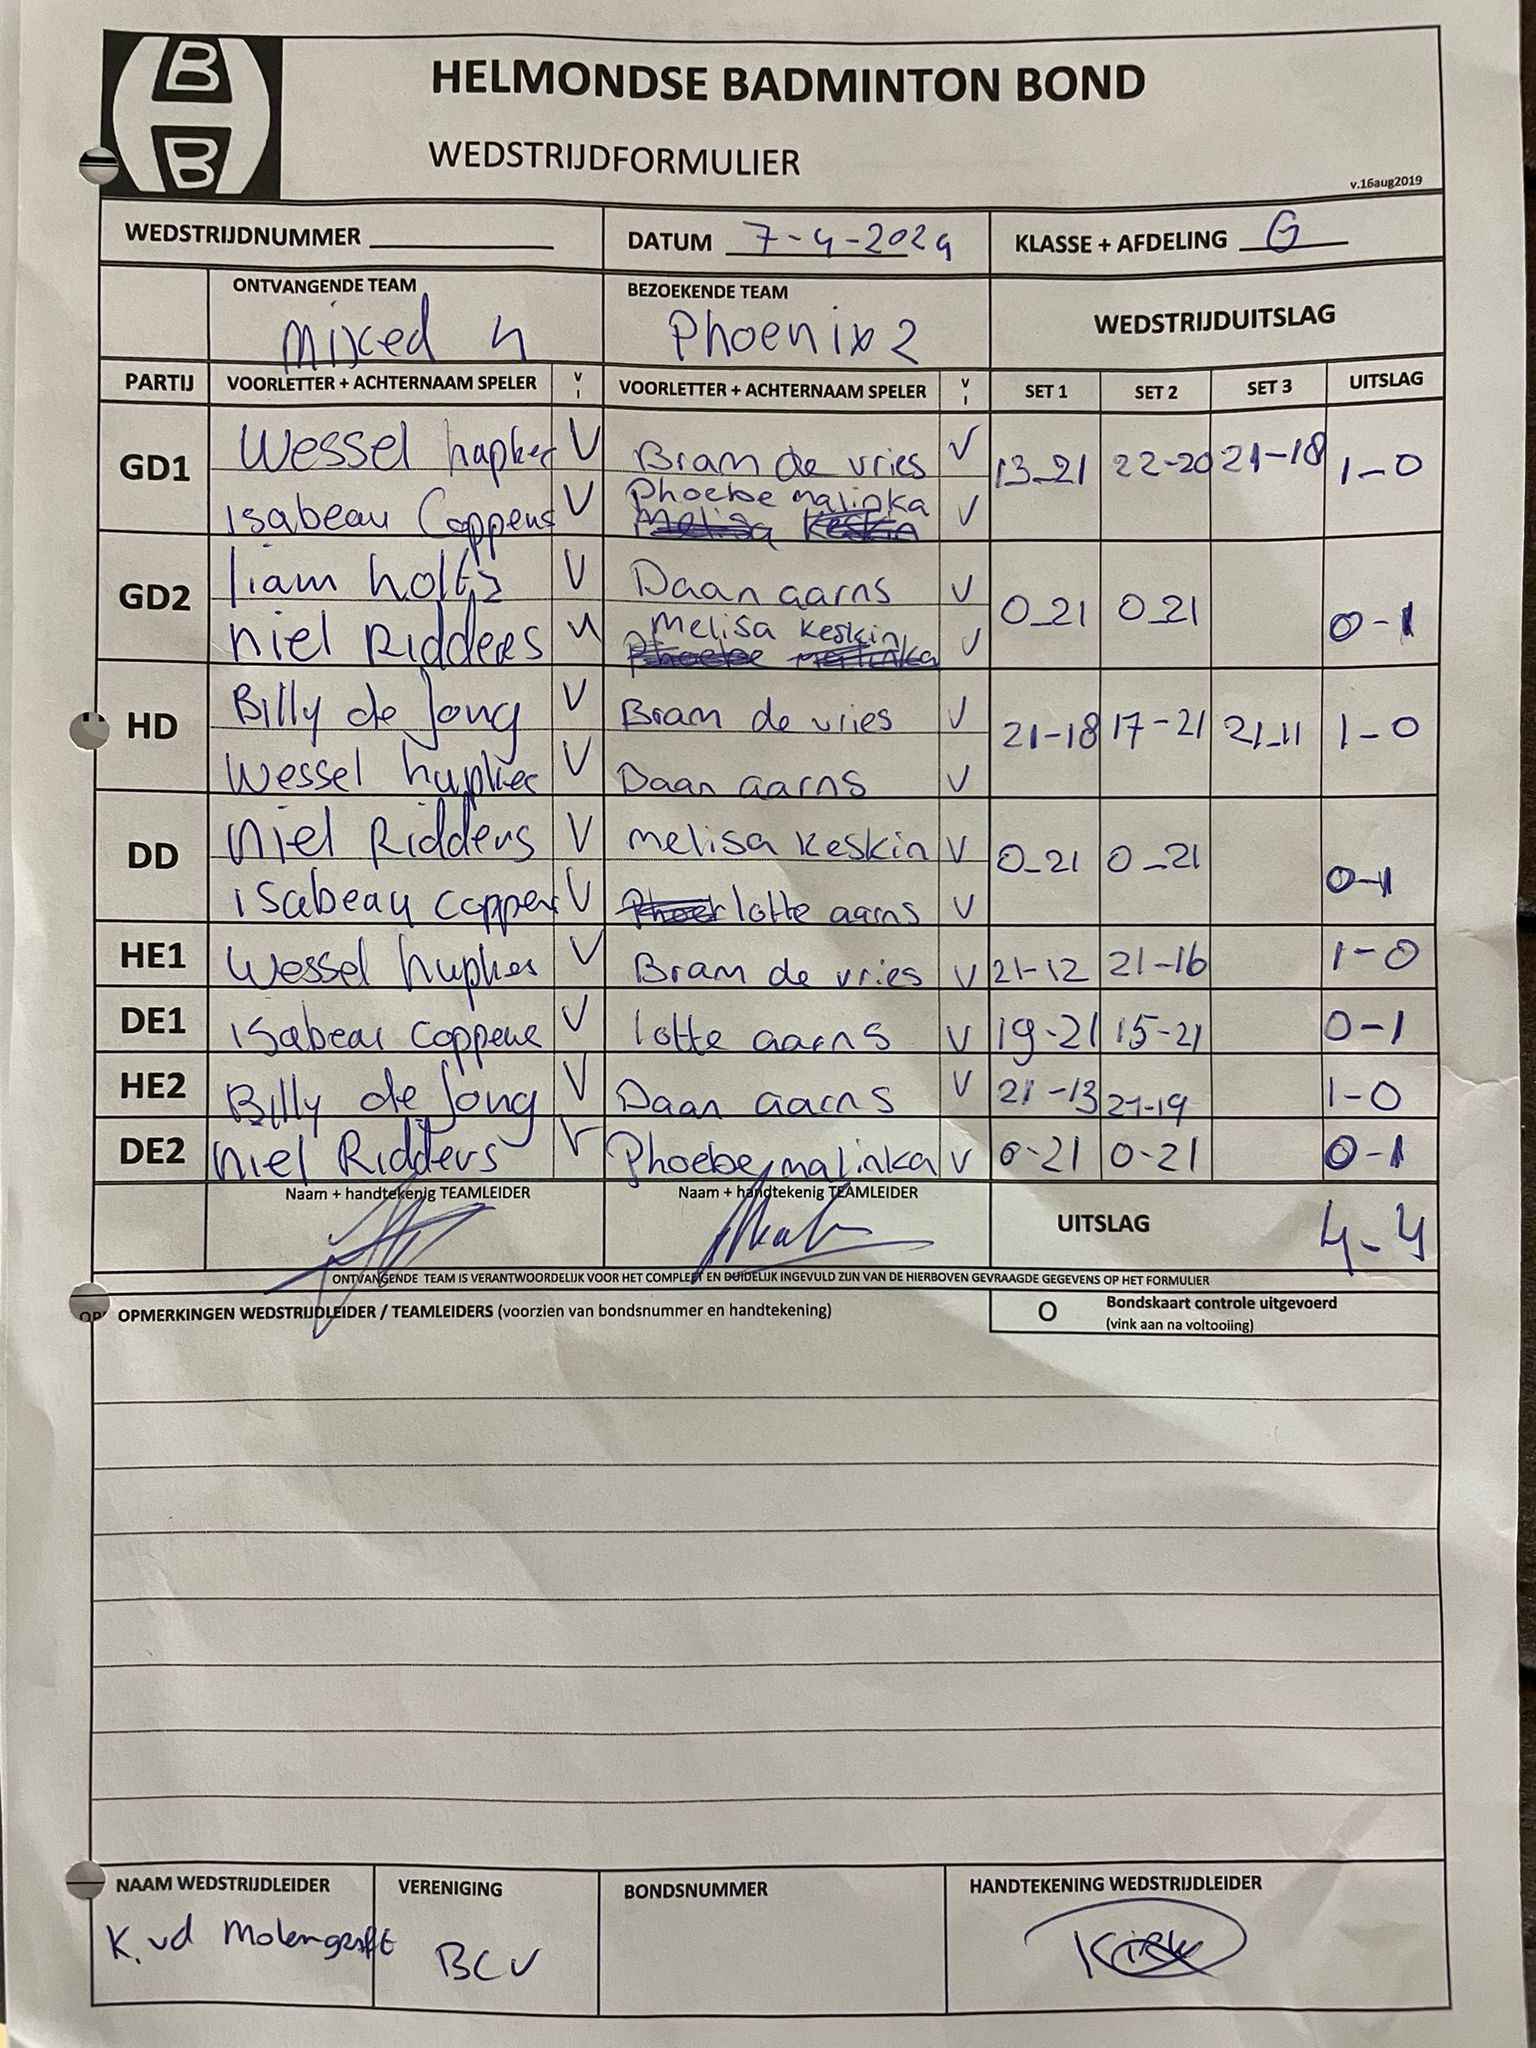 B
B
HELMONDSE BADMINTON BOND
WEDSTRIJDFORMULIER
v.16aug2019
WEDSTRIJDNUMMER DATUM 7-4-2024 KLASSE + AFDELING G
ONTVANGENDE TEAM BEZOEKENDE TEAM
Mixed 4 Phoenix 2 WEDSTRIJDUITSLAG
PARTIJ VOORLETTER + ACHTERNAAM SPELER V I VOORLETTER + ACHTERNAAM SPELER V I SET 1 SET 2 SET 3 UITSLAG
GD1 Wessel hupkes V Bram de vries V 13-21 22-20 21-18 1-0
isabeau Coppens V Phoebe malinka V
Melisa Keskin
GD2 liam holtz V Daan aarns V 0-21 0-21 0-1
niel Ridders V Melisa Keskin V
Phoebe Malinka
HD Billy de Jong V Bram de vries V 21-18 17-21 21-11 1-0
Wessel hupkes V Daan aarns V
DD niel Ridders V melisa keskin V 0-21 0-21 0-1
isabeau coppens V lotte aarns V
HE1 Wessel hupkes V Bram de vries V 21-12 21-16 1-0
DE1 isabeau coppens V lotte aarns V 19-21 15-21 0-1
HE2 Billy de Jong V Daan aarns V 21-13 21-19 1-0
DE2 niel Ridders V Phoebe malinka V 0-21 0-21 0-1
Naam + handtekenig TEAMLEIDER Naam + handtekenig TEAMLEIDER
UITSLAG 4-4
ONTVANGENDE TEAM IS VERANTWOORDELIJK VOOR HET COMPLEET EN DUIDELIJK INGEVULD ZIJN VAN DE HIERBOVEN GEVRAAGDE GEGEVENS OP HET FORMULIER
OPMERKINGEN WEDSTRIJDLEIDER / TEAMLEIDERS (voorzien van bondsnummer en handtekening) O Bondskaart controle uitgevoerd
(vink aan na voltooiing)
NAAM WEDSTRIJDLEIDER VERENIGING BONDSNUMMER HANDTEKENING WEDSTRIJDLEIDER
K. vd Molengraft BCV Kirk